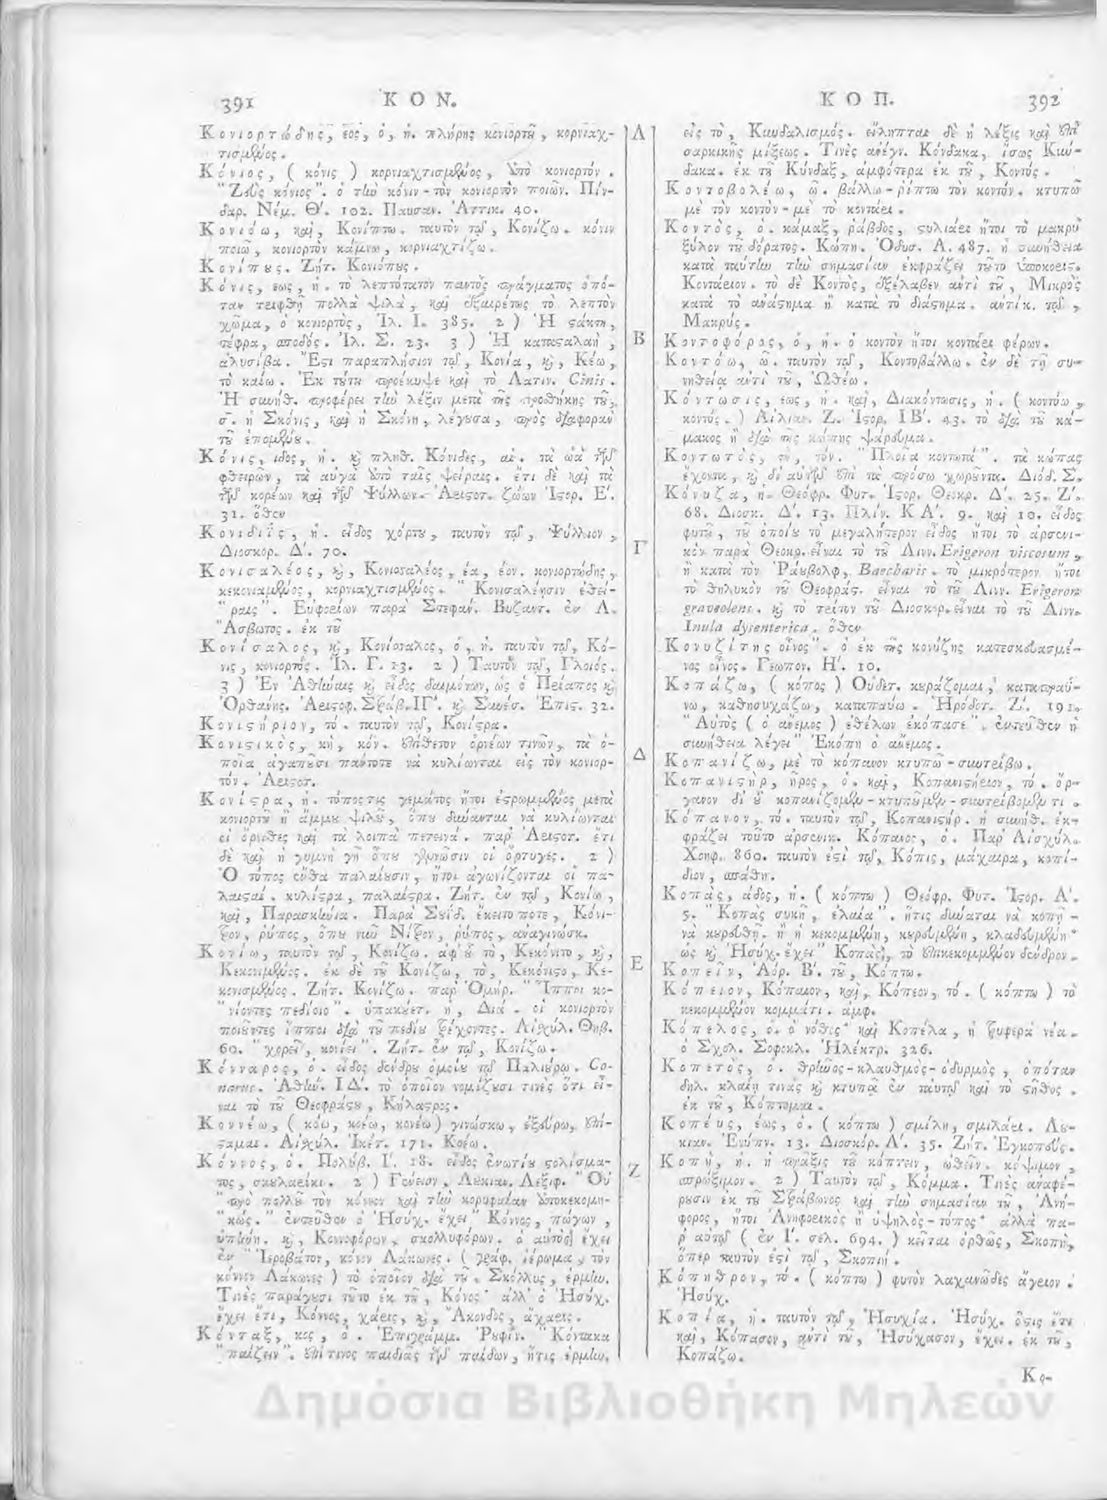 391 ΚΟΝ.
Κονιορτώδης, εος, ὁ, ἡ. πλήρης κονιορτοῦ, κορνιαχ-
τισμένος.
Κόνιος, ( κόνις ) κορνιαχτισμένος, ὑπὸ κονιορτόν.
"Ζεὺς κόνιος". ὁ τὴν κόνιν - τὸν κονιορτὸν ποιῶν. Πίν-
δαρ. Νέμ. Θ'. 102. Παυσαν. Ἀττικ. 40.
Κονιόω, καὶ, Κονίπτω. ταυτὸν τῷ, Κονίζω. κόνιν
ποιῶ, κονιορτὸν κάμνω, κορνιαχτίζω.
Κονίπους. Ζήτ. Κονιόπους.
Κόνις, εως, ἡ. τὸ λεπτότατον παντὸς πράγματος ὁπό-
ταν τριφθῇ πολλὰ ψιλὰ, καὶ ἐξαιρέτως τὸ λεπτὸν
χῶμα, ὁ κονιορτὸς, Ἰλ. Ι. 385. 2 ) Ἡ στάκτη,
τέφρα, σποδός. Ἰλ. Σ. 23. 3 ) Ἡ κατασταλαὴ,
ἁλυσίβα. Ἔστι παραπλήσιον τῷ, Κονία, καὶ, Κέω,
τὸ καίω. Ἐκ τούτου προέκυψε καὶ τὸ Λατιν. Cinis.
Ἡ συνήθ. προφέρει τὴν λέξιν μετὰ τῆς προσθήκης τοῦ,
σ. ἡ Σκόνις, καὶ ἡ Σκόνη, λέγουσα, πρὸς διαφορὰν
τοῦ ἑπομένου.
Κόνις, ιδος, ἡ. καὶ πληθ. Κόνιδες, αἱ. τὰ ὠὰ τῶν
φθειρῶν, τὰ αὐγὰ ὑπὸ ταῖς ψείραις. ἔτι δὲ καὶ τὰ
τῶν κορέων καὶ τῶν Ψύλλων. Ἀριστοτ. ζώων Ἱστορ. Ε'.
31. ὅθεν
Κονιδὶς, ἡ. εἶδος χόρτου, ταυτὸν τῷ, Ψύλλιον,
Διοσκορ. Δ'. 70.
Κονισαλέος, καὶ, Κονισσαλέος, έα, έον. κονιορτώδης,
κεκονιαμένος, κορνιαχτισμένος. "Κονισαλέησιν ἐθεί-
"ραις". Εὐφορίων παρὰ Στεφάν. Βυζαντ. ἐν Λ.
"Ἄσβωτος. ἐκ τοῦ
Κονίσαλος, καὶ, Κονίσσαλος, ὁ, ἡ. ταυτὸν τῷ, Κό-
νις, κονιορτὸς. Ἰλ. Γ. 13. 2 ) Ταυτὸν τῷ, Γλοιός.
3 ) Ἐν Ἀθήναις καὶ εἶδος δαιμόνων, ὡς ὁ Πρίαπος καὶ
Ὀρθάνης. Ἀριστοφ. Στράβ. ΙΓ'. καὶ Συνέσ. Ἐπιστ. 32.
Κονιστήριον, τό. ταυτὸν τῷ, Κονίστρα.
Κονιστικὸς, κὴ, κόν. ἐπίθετον ὀρνέων τινῶν, τὰ ὁ-
ποῖα ἀγαπῶσι πάντοτε νὰ κυλίωνται εἰς τὸν κονιορ-
τόν. Ἀριστοτ.
Κονίστρα, ἡ. τόπος τις γεμάτος ἤτοι ἐστρωμμένος μετὰ
κονιορτοῦ ἢ ἄμμου ψιλοῦ, ὅπου δύνανται νὰ κυλίωνται
οἱ ὄρνιθες καὶ τὰ λοιπὰ πετεινά. παρ' Ἀριστοτ. ἔτι
δὲ καὶ ἡ γυμνὴ γῆ ὅπου γεννῶσιν οἱ ὄρτυγες. 2 )
Ὁ τόπος ἔνθα παλαίουσιν, ἤτοι ἀγωνίζονται οἱ πα-
λαισταί. κυλίστρα, παλαίστρα. Ζήτ. ἐν τῷ, Κονίω,
καὶ, Παρασκλωία. Παρὰ Σουίδ. ἔκειτο ποτε, Κόνι-
τρον, ῥύπος, ὅπου νῦν Νίτρον, ῥύπος, ἀναγινώσκ.
Κονίω, ταυτὸν τῷ, Κονίζω. ἀφ' οὗ τὸ, Κεκόνιτο, καὶ,
Κεκονιμένος. ἐκ δὲ τοῦ Κονίζω, τὸ, Κεκόνιστο, Κε-
κονισμένος. Ζήτ. Κονίζω. παρ' Ὁμήρ. "Ἵπποι κο-
"νίοντες πεδίοιο". ὑπακούετ. ἡ, Διά. οἱ κονιορτὸν
ποιοῦντες ἵπποι διὰ τοῦ πεδίου τρέχοντες. Αἰσχύλ. Θηβ.
60. "χωρεῖ, κονίει". Ζήτ. ἐν τῷ, Κονίζω.
Κόνναρος, ὁ. εἶδος δένδρου ὁμοίου τῷ Παλιούρῳ. Co-
narus. Ἀθήν. ΙΔ'. τὸ ὁποῖον νομίζουσι τινὲς ὅτι εἶ-
ναι τὸ τοῦ Θεοφράστου, Κήλαστρος.
Κοννέω, ( κόω, κοέω, κονέω ) γινώσκω, ἐξεύρω, ἐπί-
σταμαι. Αἰσχύλ. Ἱκέτ. 171. Κοέω.
Κόννος, ὁ. Πολύβ. Ι'. 18. εἶδος ἐνωτίου στολίσμα-
τος, σκυλαρίκι. 2 ) Γένειον, Λουκιαν. Λεξιφ. "Οὐ
"πρὸ πολλοῦ τὸν κόννον καὶ τὴν κορυφαίαν ἀποκεκομη-
"κώς." ἐντεῦθεν ὁ Ἡσύχ. ἔχει "Κόννος, πώγων,
ὑπήνη. καὶ, Κοννοφόρων, σκολλυφόρων. ὁ αὐτὸς ἔχει
ἐν "Ἱεροβάτον, κόνον Λάκωνες. ( γράφ. ἱέρωμα, τὸν
κόννον Λάκωνες ) τὸ ὁποῖον διὰ τοῦ, Σκόλλυς, ἑρμην.
Τινὲς παράγουσι τοῦτο ἐκ τοῦ, Κόνος· ἀλλ' ὁ Ἡσύχ.
ἔχει ἔτι, Κόννος, χάρις, καὶ, Ἄκονδος, ἄχαρις.
Κόνταξ, κος, ὁ. Ἐπιγράμμ. Ῥουφίν. "Κόντακα
"παίζειν". ἐπί τινος παιδιᾶς τῶν παίδων, ἥτις ἑρμην.
Α
Β
Γ
Δ
Ε
Ζ
ΚΟΠ. 392
εἰς τὸ, Κυνδαλισμός. εἴληπται δὲ ἡ λέξις καὶ ἐπὶ
σαρκικῆς μίξεως. Τινὲς ἀνέγν. Κόνδακα, ἴσως Κυν-
δακα. ἐκ τοῦ Κύνδαξ, ἀμφότερα ἐκ τοῦ, Κοντός.
Κοντοβολέω, ῶ. βάλλω - ῥίπτω τὸν κοντόν. κτυπῶ
μὲ τὸν κοντὸν - μὲ τὸ κοντάρι.
Κοντὸς, ὁ. κάμαξ, ῥάβδος, στυλιάρι ἤτοι τὸ μακρὺ
ξύλον τοῦ δόρατος. Κώπη. Ὀδυσ. Λ. 487. ἡ συνήθεια
κατὰ ταύτην τὴν σημασίαν ἐκφράζει τοῦτο ὑποκοριστ.
Κοντάριον. τὸ δὲ Κοντὸς, ἐξέλαβεν ἀντὶ τοῦ, Μικρὸς
κατὰ τὸ ἀνάστημα ἢ κατὰ τὸ διάστημα. ἀντίκ. τῷ,
Μακρύς.
Κοντοφόρος, ὁ, ἡ. ὁ κοντὸν ἤτοι κοντάρι φέρων.
Κοντόω, ῶ. ταυτὸν τῷ, Κοντοβάλλω. ἐν δὲ τῇ συ-
νηθείᾳ ἀντὶ τοῦ, Ὠθέω.
Κόντωσις, εως, ἡ. καὶ, Διακόντωσις, ἡ. ( κοντόω,
κοντός. ) Αἰλιαν. Ζ. Ἱστορ. ΙΒ'. 43. τὸ διὰ τοῦ κά-
μακος ἢ διὰ τῆς κώπης ψάρευμα.
Κοντωτὸς, τὴ, τόν. "Πλοῖα κοντωτά". τὰ κώπας
ἔχοντα, καὶ δι' αὐτῶν ἐπὶ τὰ πρόσω χωροῦντα. Διόδ. Σ.
Κόνυζα, ἡ. Θεόφρ. Φυτ. Ἱστορ. Θεοκρ. Δ'. 25. Ζ'.
68. Διοσκ. Δ'. 13. Πλίν. ΚΑ'. 9. καὶ 10. εἶδος
φυτοῦ, τοῦ ὁποίου τὸ μεγαλήτερον εἶδος ἤτοι τὸ ἀρσενι-
κὸν παρὰ Θεοκρ. εἶναι τὸ τοῦ Λινν. Erigeron viscosum,
ἢ κατὰ τὸν Ῥάυβολφ, Baccharis. τὸ μικρότερον ἤτοι
τὸ θηλυκὸν τοῦ Θεόφραστ. εἶναι τὸ τοῦ Λινν. Erigeron
graveolens. καὶ τὸ τρίτον τοῦ Διοσκορ. εἶναι τὸ τοῦ Λινν.
Inula dysenterica. ὅθεν
Κονυζίτης οἶνος". ὁ ἐκ τῆς κονύζης κατεσκευασμέ-
νος οἶνος. Γεωπον. Η'. 10.
Κοπάζω, ( κόπος ) Οὐδετ. κουράζομαι, καταπραύ-
νω, καθησυχάζω, καταπαύω. Ἡρόδοτ. Ζ'. 191.
"Αὐτὸς ( ὁ ἄνεμος ) ἐθέλων ἐκόπασε". ἐντεῦθεν ἡ
συνήθεια λέγει "Ἐκόπη ὁ ἄνεμος.
Κοπανίζω, μὲ τὸ κόπανον κτυπῶ - συντρίβω.
Κοπανιστὴρ, ῆρος, ὁ. καὶ, Κοπανιστήριον, τό. ὄρ-
γανον δι' οὗ κοπανίζομεν - κτυποῦμεν - συντρίβομεν τι.
Κόπανον, τό. ταυτὸν τῷ, Κοπανιστήρ. ἡ συνήθ. ἐκ-
φράζει τοῦτο ἀρσενικ. Κόπανος, ὁ. Παρ' Αἰσχύλ.
Χοηφ. 860. ταυτὸν ἐστὶ τῷ, Κόπις, μάχαιρα, κοπί-
διον, σπάθη.
Κοπὰς, άδος, ἡ. ( κόπτω ) Θεόφρ. Φυτ. Ἱστορ. Α'.
5. "Κοπὰς συκῆ, ἐλαία". ἥτις δύναται νὰ κοπῇ -
νὰ κουρευθῇ. ἢ ἡ κεκομμένη, κουρευμένη, κλαδευμένη·
ὡς καὶ Ἡσύχ. ἔχει "Κοπὰς, τὸ ἐπικεκομμένον δένδρον.
Κοπεῖν, Ἀόρ. Β'. τοῦ, Κόπτω.
Κόπειον, Κόπαιον, καὶ, Κόπεον, τό. ( κόπτω ) τὸ
κεκομμένον κομμάτι. ἀμφ.
Κόπελος, ὁ. ὁ νόθος· καὶ Κοπέλα, ἡ τρυφερὰ νέα.
ὁ Σχολ. Σοφοκλ. Ἠλέκτρ. 326.
Κοπετὸς, ὁ. θρῆνος - κλαυθμὸς - ὀδυρμὸς, ὁπόταν
δηλ. κλαίῃ τινὰς καὶ κτυπᾷ ἐν ταυτῷ καὶ τὸ στῆθος.
ἐκ τοῦ, Κόπτομαι.
Κοπεὺς, έως, ὁ. ( κόπτω ) σμίλη, σμιλάρι. Λου-
κιαν. Ἐνύπν. 13. Διοσκόρ. Α'. 35. Ζήτ. Ἐγκοπεύς.
Κοπὴ, ἡ. ἡ πρᾶξις τοῦ κόπτειν, ὠθεῖν. κόψιμον,
σπρώξιμον. 2 ) Ταυτὸν τῷ, Κόμμα. Τινὲς ἀναφέ-
ρουσιν ἐκ τοῦ Στράβωνος καὶ τὴν σημασίαν τοῦ, Ἀνή-
φορος, ἤτοι Ἀνηφορικὸς ἢ ὑψηλὸς - τόπος· ἀλλὰ πα-
ρ' αὐτῷ ( ἐν Γ'. σελ. 694. ) κεῖται ὀρθῶς, Σκοπὴ,
ὅπερ ταυτὸν ἐστὶ τῷ, Σκοπιή.
Κόπηθρον, τό. ( κόπτω ) φυτὸν λαχανῶδες ἄγριον.
Ἡσύχ.
Κοπία, ἡ. ταυτὸν τῷ, Ἡσυχία. Ἡσύχ. ὅστις ἔτι
καὶ, Κόπασον, ἀντὶ τοῦ, Ἡσύχασον, ἔχει. ἐκ τοῦ,
Κοπάζω.
Κο-
Δημόσια Βιβλιοθήκη Μηλεών